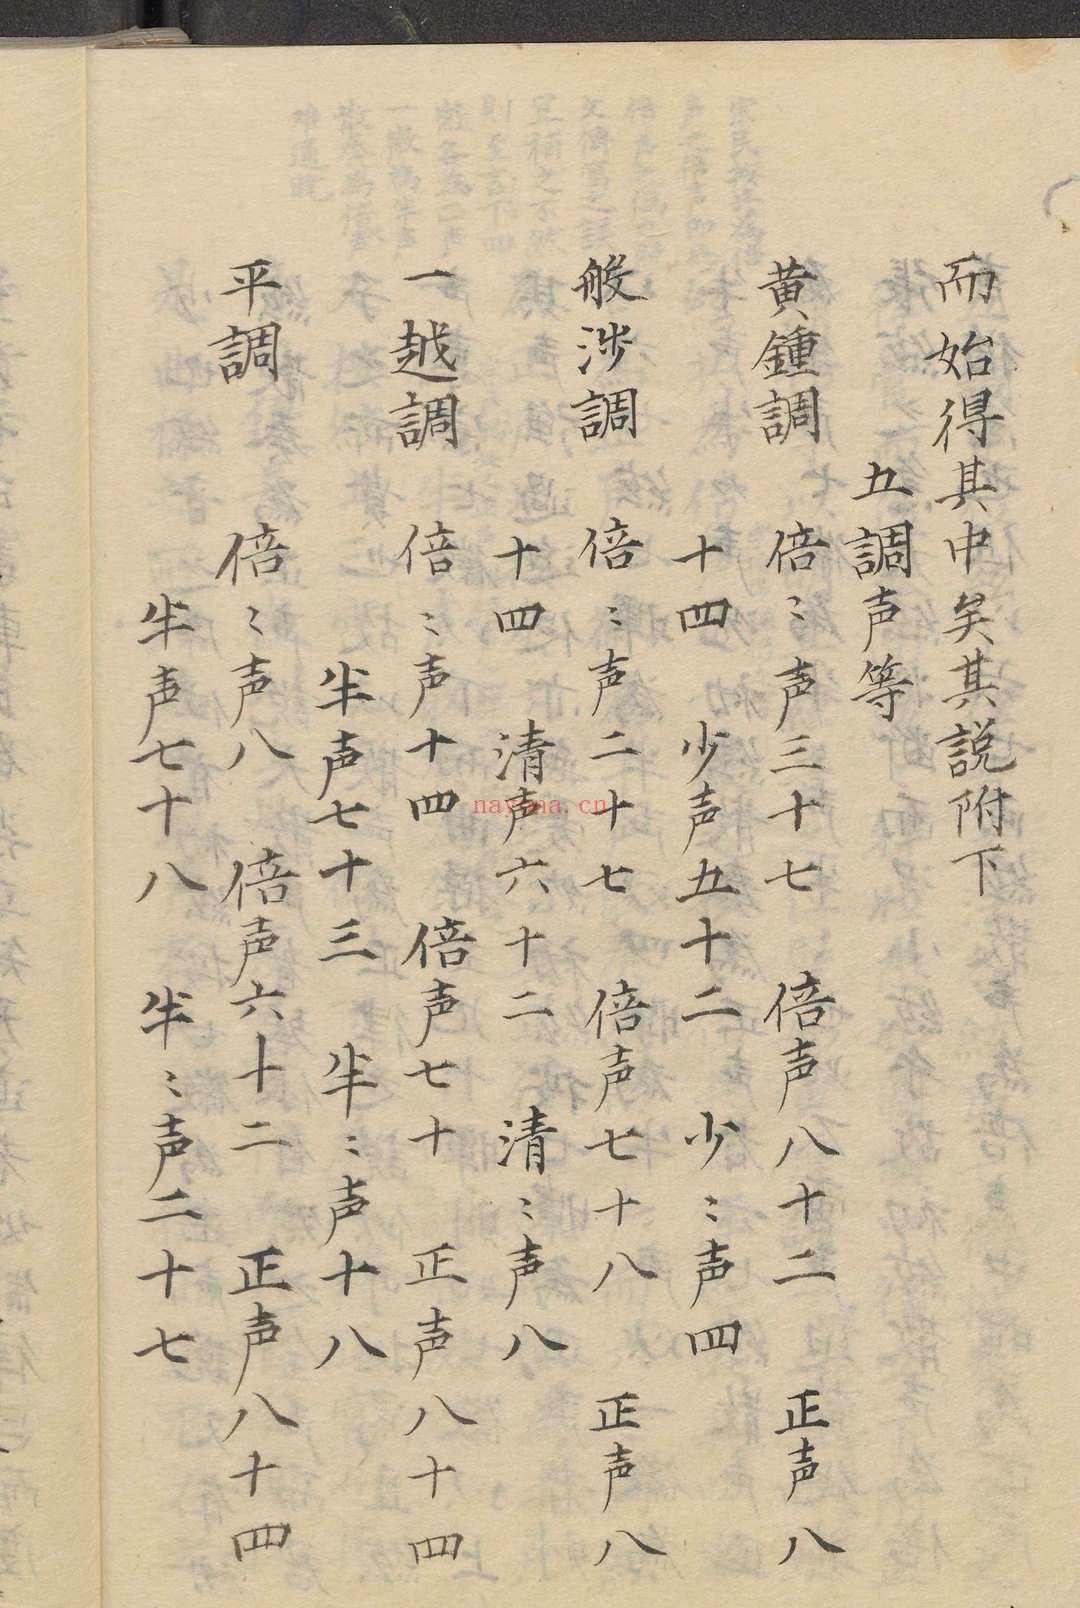 而始得其中矣其説附下
五調声等
黄鍾調 倍〻声三十七 倍声八十二 正声八
十四 少声五十二 少〻声四
般渉調 倍〻声二十七 倍声七十八 正声八
十四 清声六十二 清〻声八
一越調 倍〻声十四 倍声七十 正声八十四
半声七十三 半〻声十八
平調 倍〻声八 倍声六十二 正声八十四
半声七十八 半〻声二十七
nayona.cn